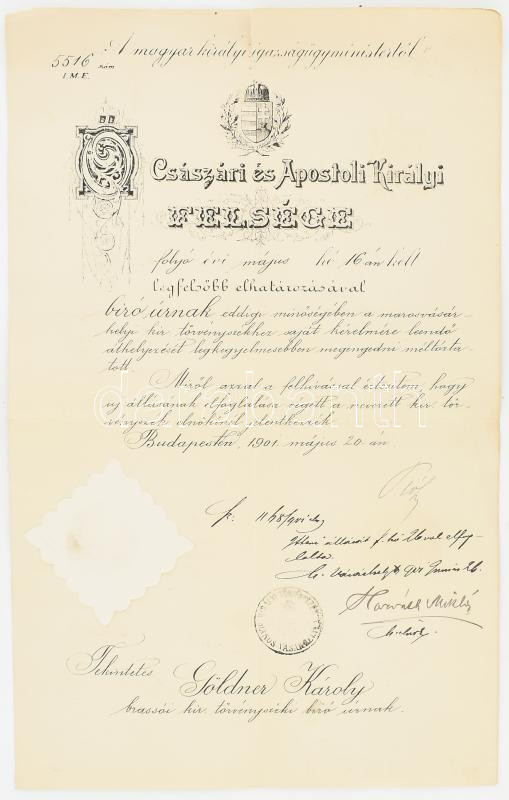 A magyar királyi igazságügyministertől
5516 szám
I.M.E.
Császári és Apostoli Királyi
FELSÉGE
folyó évi május hó 16 án kelt
legfelsőbb elhatározásával
biró úrnak eddigi minőségében a marosvásár-
helyi kir. törvényszékhez saját kérelmére leendő
áthelyezését legkegyelmesebben megengedni méltózta-
tott.
Miről azzal a felhivással értesitem, hogy
uj állásának elfoglalása végett a nevezett kir. tör-
vényszék elnökénél jelentkezzék.
Budapesten, 1901. május 20-án.
darabanth
Horváth Miklós
Tekintetes
Göldner Károly
brassói kir. törvényszéki biró úrnak.